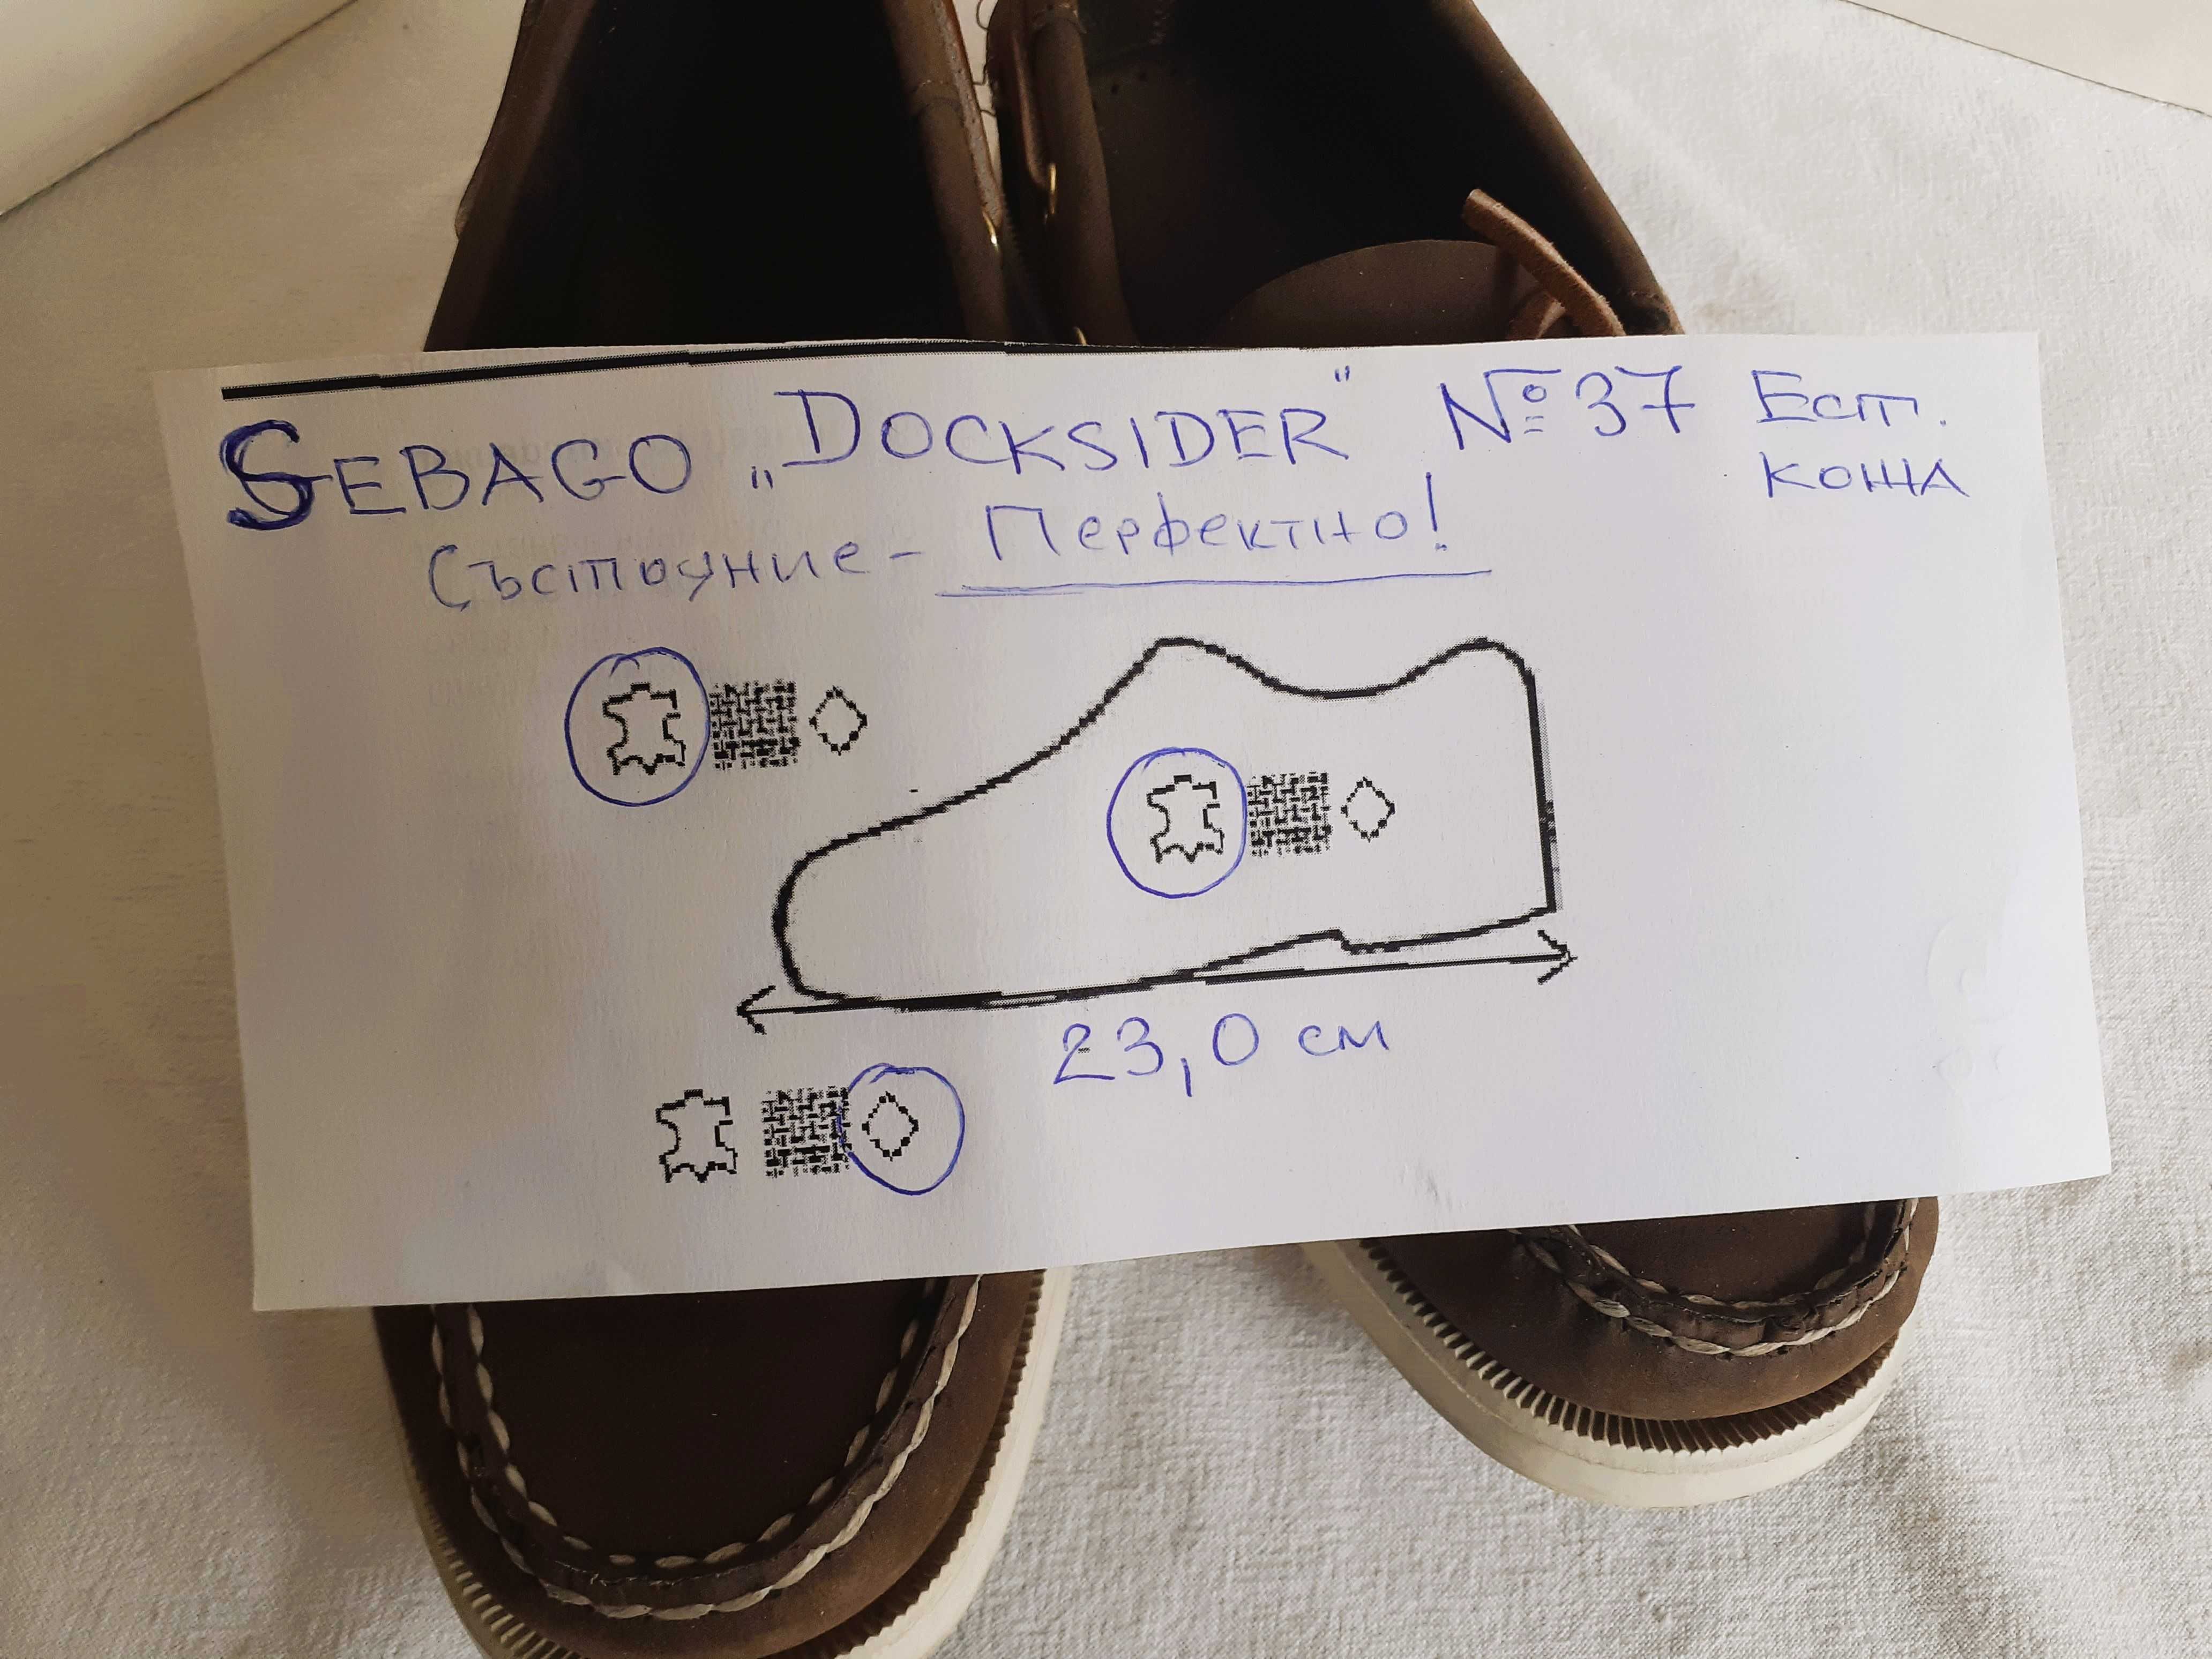 SEBAGO „DOCKSIDER" № 37 Ест. кожа
Състояние - Перфектно!
23,0 см